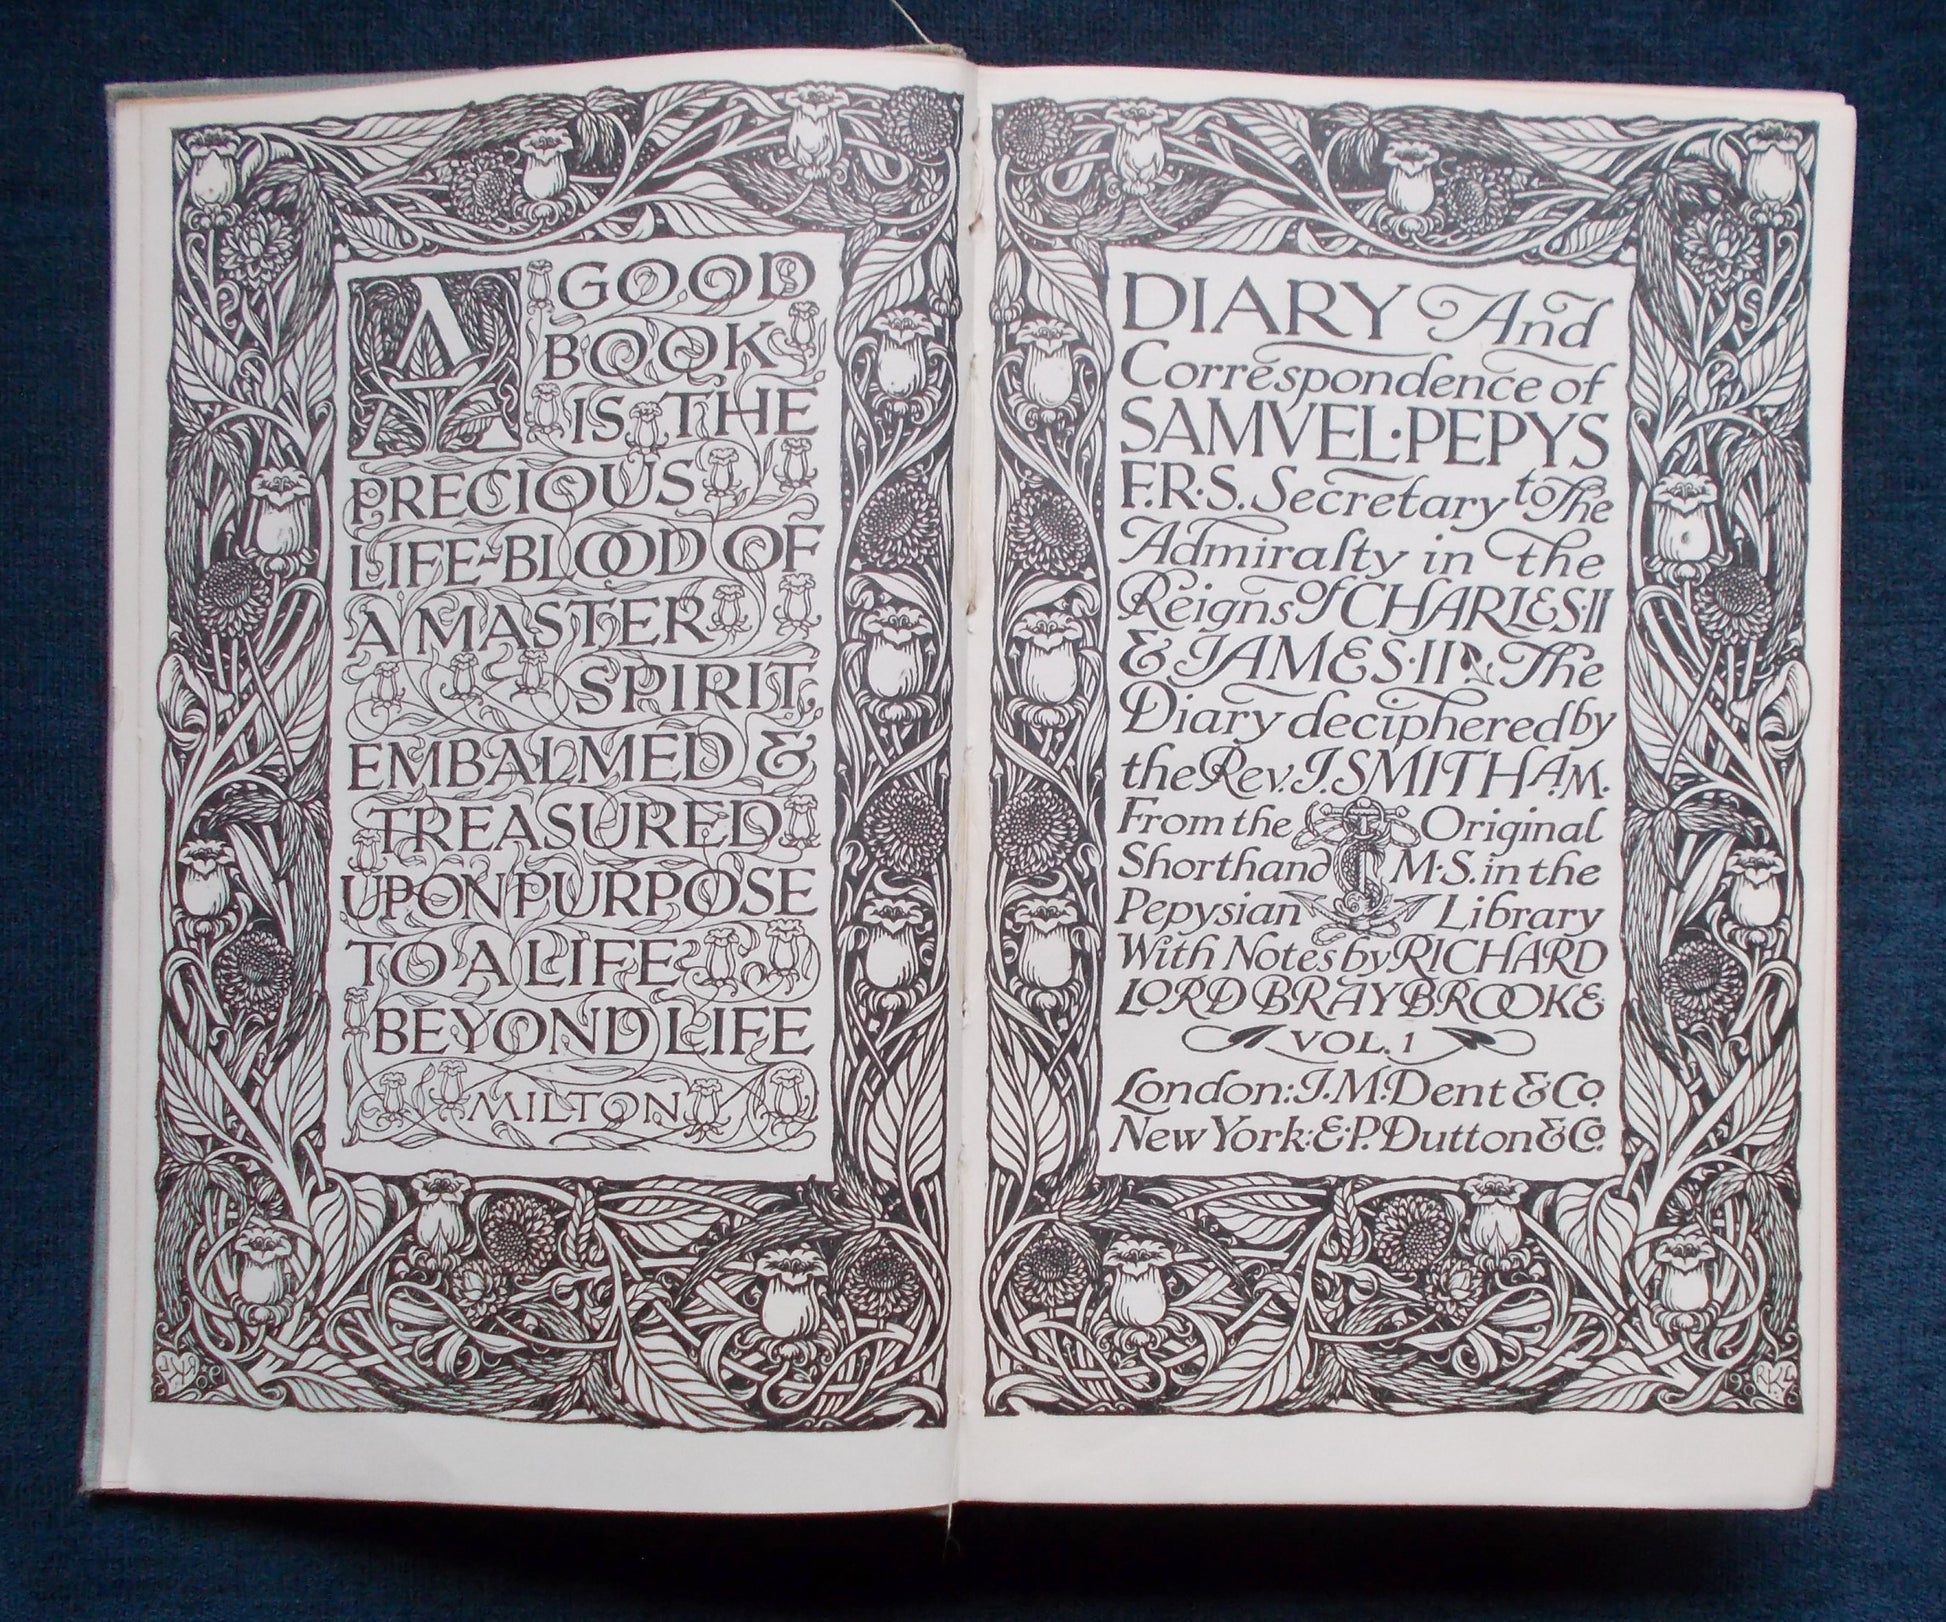 A GOOD
BOOK
IS THE
PRECIOUS
LIFE-BLOOD OF
A MASTER
SPIRIT,
EMBALMED &
TREASURED
UPON PURPOSE
TO A LIFE
BEYOND LIFE
MILTON
DIARY And
Correspondence of
SAMVEL·PEPYS
F.R.S. Secretary to The
Admiralty in the
Reigns of CHARLES·II
& JAMES·II The
Diary deciphered by
the Rev. J. SMITH A.M.
From the Original
Shorthand M·S. in the
Pepysian Library
With Notes by RICHARD
LORD BRAYBROOKE
VOL. 1
London: J. M. Dent & Co.
New York: E. P. Dutton & Co.